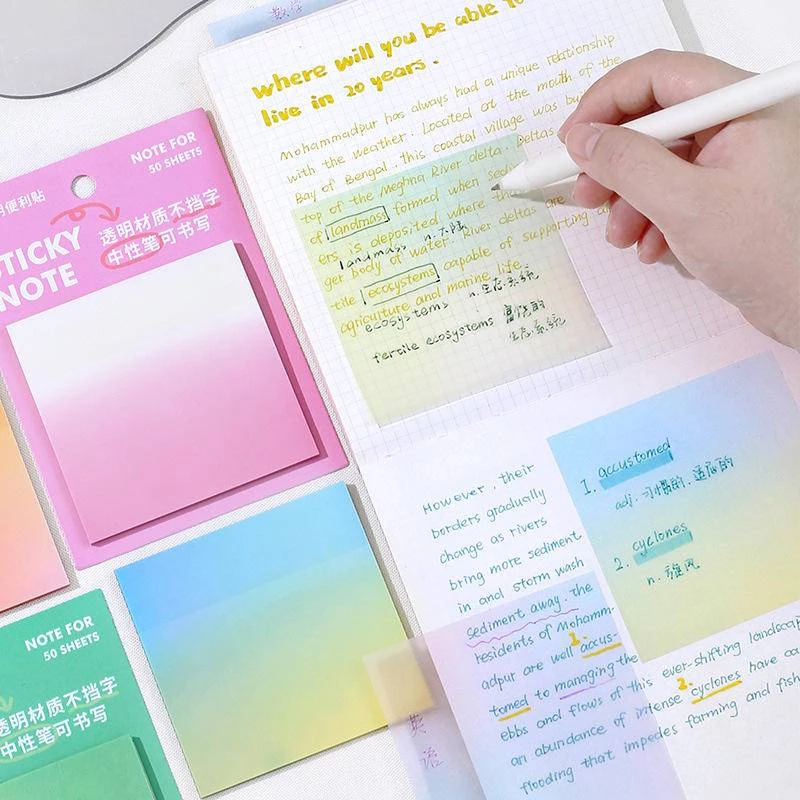 数学
where will you be able to
live in 20 years.
Mohammadpur has always had a unique relationship
with the weather. Located at the mouth of the
Bay of Bengal, this coastal village was
top of the Meghna River delta. Deltas
of landmass formed when
ers is deposited where
ger body of water. River deltas are
tile ecosystems capable of supporting
agriculture and marine life.
landmass n. 大陆
ecosystems n. 生态系统
fertile ecosystems 富饶的
生态系统
NOTE FOR
50 SHEETS
便利贴
STICKY
NOTE
透明材质不挡字
中性笔可书写
1. accustomed
adj. 习惯的, 适应的
2. cyclones
n. 旋风
However, their
borders gradually
change as rivers
bring more sediment
in and storm wash
sediment away. the
residents of Mohamm-
adpur are well 1. accus-
tomed to managing the
ebbs and flows of this ever-shifting landscap
an abundance of intense 2. cyclones have
flooding that impedes farming and fish
英语
NOTE FOR
50 SHEETS
透明材质不挡字
中性笔可书写